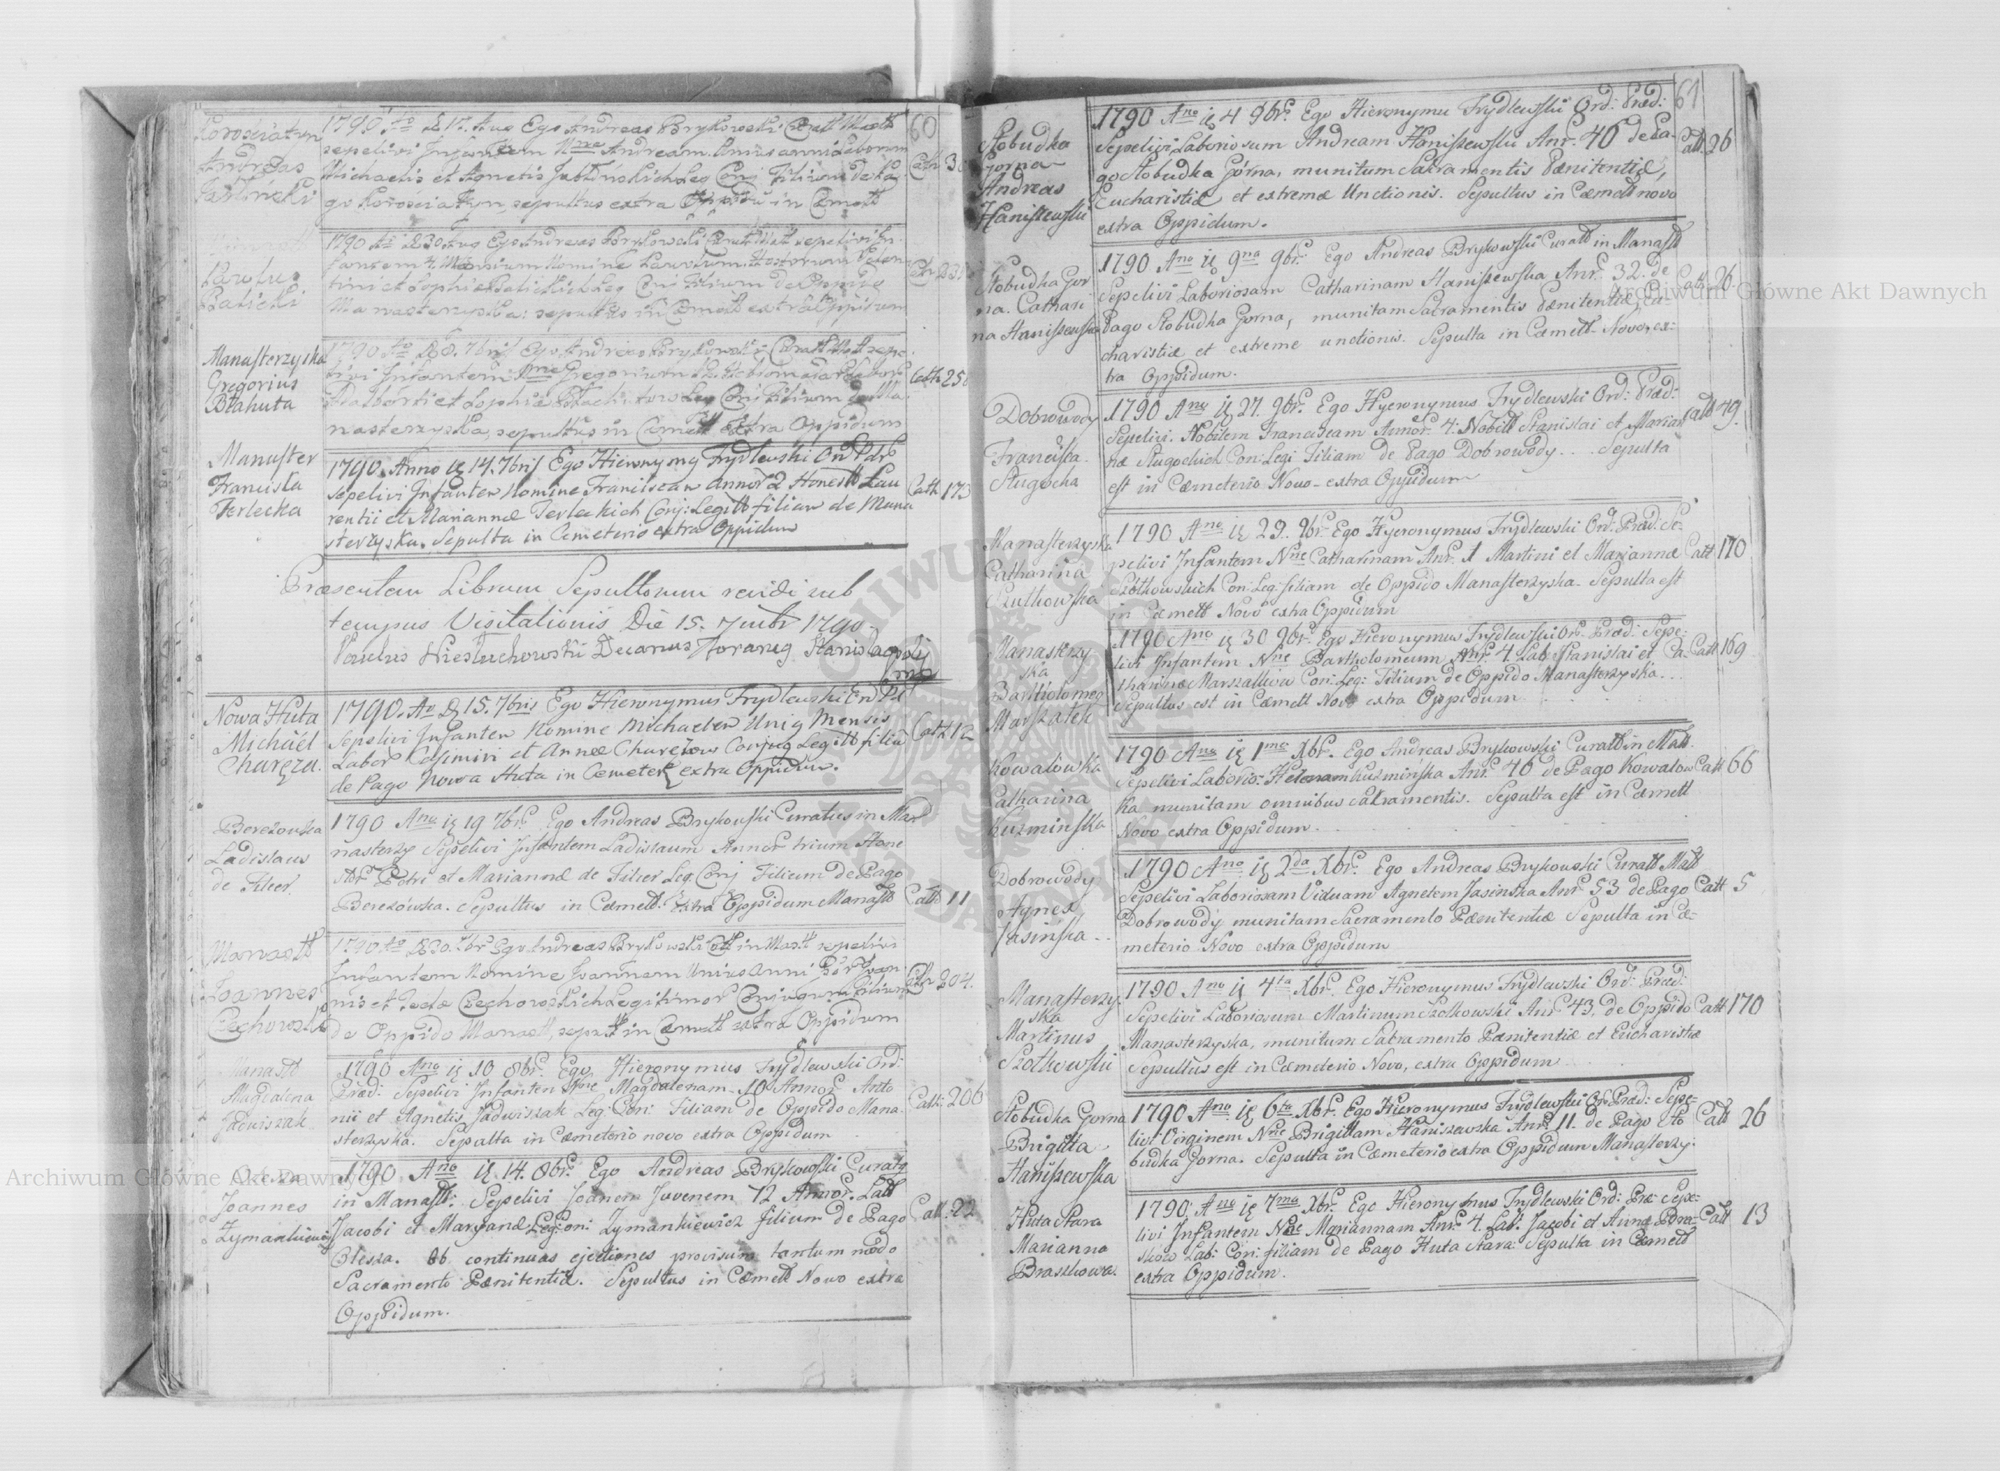 60
Korościatyn
Andreas
Jabłoński
1790 Ao D 17. Aug Ego Andreas Brykowski Curatt Mastt
sepelivi Infantem Nne Andream Unius anni Laborum
Michaelis et Agnetis Jabłońskich Leg Conj Filium de Pa
go Korosciatyn, sepultus extra Oppidu in Cemett
Cath 3
Paulus
Balicki
1790 Ao D 30 Aug Ego Andreas Brykowski Curatt Mastt sepelivi In-
fantem Nomine
tini et Sophiæ Balickich Leg Conj Filium de Oppido
Manasterzyska: sepultus in Cæmett extra Oppidum
Cath 23
Manasterzyska
Gregorius
Błahuta
1790 Ao D 8. 7bris Ego Andreas Brykowski Curatt Mstt sepe-
livi Infantem Nne Gregorium
Leg Conj Filium de Ma
nasterzyska, sepultus in Cemett Extra Oppidum
Cath 25
Manaster
Francisca
Terlecka
1790. Anno D 14. 7bris Ego Hieronymq Frydlewski Ord Præ
sepelivi Infanten Nomine Franciscan Annor 2 Honestt Lau
rentii et Mariannæ Terleckich Conj: Legitt filian de Mana
sterzyska. Sepulta in Cemeterio extra Oppidum
Cath 173
Præsentem Librum Sepultorum revidi sub
tempus Visitationis Die 15. 7mbr 1790.
Decanus Foraneq Stanislaopoli
Nowa Huta
Michäel
Charęza.
1790. Ao D 15. 7bris Ego Hieronymus Frydlewski Ord Pr
Sepelivi Infanten Nomine Michaelen Uniq Mensis
Labor Casimiri et Annæ Charęzow Conjug Legitt filiū
de Pago Nowa Huta in Cæmeter extra Oppidum.
Cath 12
Berezowska
Ladislaus
de Filier.
1790 Ano D 19 7br. Ego Andreas Brykowski Curatus in Mar
nasterzy Sepelivi Infantem Ladislaum Annor trium Hone
stor Petri et Mariannæ de Filier Leg Conj Filium de Pago
Berezówska. Sepultus in Cæmett: Extra Oppidum Manastt
Catt 11
Manastt
Joannes
Czechowski
1790 Ao D 30. 7br Ego Andreas Brykowski Ctt in Mastt sepelivi
Infantem Nomine Joannem Unius Anni
nis et Teclæ Czechowskich Legitimor Conjugum Filium
de Oppido Manastt, sepultt in Cæmett extra Oppidum
Cath 204.
Manastt
Magdalena
Jadwiszak
1790 Ano D 10 8br. Ego Hieronymus Frydlewski Ord:
Præd: Sepelivi Infanten Nne Magdalenam 10 Annor Anto
nii et Agnetis Jadwiszak Leg: Con: Filiam de Oppido Mana-
sterzyska. Sepulta in Cæmeterio novo extra Oppidum
Catt: 206
Olesza
Joannes
Zymankiewicz
1790 Ano D 14. 8br. Ego Andreas Brykowski Curatq
in Manastt: Sepelivi Joanem Juvenem 12 Annor. Labb
Jacobi et Maryanæ Leg: Con: Zymankiewicz filium de Pago
Olesza. Ob continuas ejectiones provisum tantum modo
Sacramento Pænitentiæ. Sepultus in Cæmett Novo extra
Oppidum.
Catt. 22
61
Słobudka
Gorna
Andreas
Haniszewski
1790 Ano D 4 9br. Ego Hieronymu Frydlewski Ord: Præd:
Sepelivi Laboriosum Andream Haniszewski Anr. 40 de Pa-
go Słobudka Górna, munitum Sacramentis Pænitentiæ,
Eucharistiæ et extremæ Unctionis. Sepultus in Cæmett novo
extra Oppidum.
Catt. 26
Słobudka Gor
na. Cathari
na Haniszewska
1790 Ano D 9na 9br. Ego Andreas Brykowski Curatt in Manastt
Sepelivi Laboriosam Catharinam Haniszewska Anr. 32. de
Pago Słobudka Gorna, munitam Sacramentis Pænitentiæ, Eu-
charistiæ et extreme unctionis. Sepulta in Cæmett- Novo, ex-
tra Oppidum.
Catt 26
Dobrowody
Franciska
Sługocka
1790 Ano D 27. 9br. Ego Hyeronymus Frydlewski Ord: Præd:
Sepelivi. Nobilem Franciscam Annor. 4: Nobill Stanislai et Marian
næ Sługockich Con: Legi Filiam de Pago Dobrowody... Sepulta
est in Cæmeterio Novo- extra Oppidum
Catt 49.
Manasterzyska
Catharina
Szołkowska
1790 Ano D 29. 9br. Ego Hyeronymus Frydlewski Ord: Præd: Se-
pelivi Infantem Nne Catharinam Anr. 1 Martini et Mariannæ
Szołkowskich Con: Leg: filiam de Oppido Manasterzyska- Sepulta est
in Cæmett Novo extra Oppidum
Catt 170
Manasterzy
ska
Bartholomeq
Marszałek
1790 Ano D 30 9br. Ego Hieronymus Frydlewski Or: Præd: Sepe-
livi Infantem Nne Bartholomeum Anr. 4. Lab: Stanislai et Ca-
tharinæ Marszałkow Con: Leg: Filium de Oppido Manasterzyska...
Sepultus est in Cæmett Novo extra Oppidum
Catt 169
Kowalówka
Catharina
Kuzminska
1790 Ano D 1ma Xbr. Ego Andreas Brykowski Curatt in Matt.
Sepelivi Laborio: Helenam Kuzmińska Anr. 46 de Pago Kowalow
ka munitam omnibus Sakramentis. Sepulta est in Cæmett
Novo extra Oppidum.
Catt 66
Dobrowody
Agnes
Jasińska..
1790 Ano D 2da Xbr. Ego Andreas Brykowski Curatt Matt
Sepelivi Laboriosam Viduam Agnetem Jasinska Anr 53 de Pago
Dobrowody munitam Sacramento Pænitentiæ Sepulta in Cæ-
meterio Novo extra Oppidum
Catt. 5
Manasterzy-
ska
Martinus
Szołkowski
1790 Ano D 4ta Xbr. Ego Hieronymus Frydlewski Ord: Præd:
Sepelivi Laboriosum Martinum Szołkowski Anr 43. de Oppido
Manasterzyska, munitum Sacramento Pænitentiæ et Eucharistiæ
Sepultus est in Cæmeterio Novo, extra Oppidum
Catt 170
Słobudka Gorna
Brigitta
Haniszewska
1790 Ano D 6ta Xbr. Ego Hieronymus Frydlewski Or: Præd: Sepe-
livi Virginem Nne Brigittam Haniszewska Anr. 11. de Pago Sło
budka Gorna. Sepulta in Cæmeterio extra Oppidum Manasterzy:
Catt 26
Huta Stara
Marianna
Braszkowa.
1790: Ano D 7ma Xbr. Ego Hieronymus Frydlewski Ord: Præ: Sepe-
livi Infantem Nne Mariannam Anr. 4. Lab: Jacobi et Annæ Bra-
szkow Lab: Con: filiam de Pago Huta Stara: Sepulta in Cæmett
extra Oppidum.
Catt 13
Archiwum Główne Akt Dawnych
Archiwum Główne Akt Dawnych